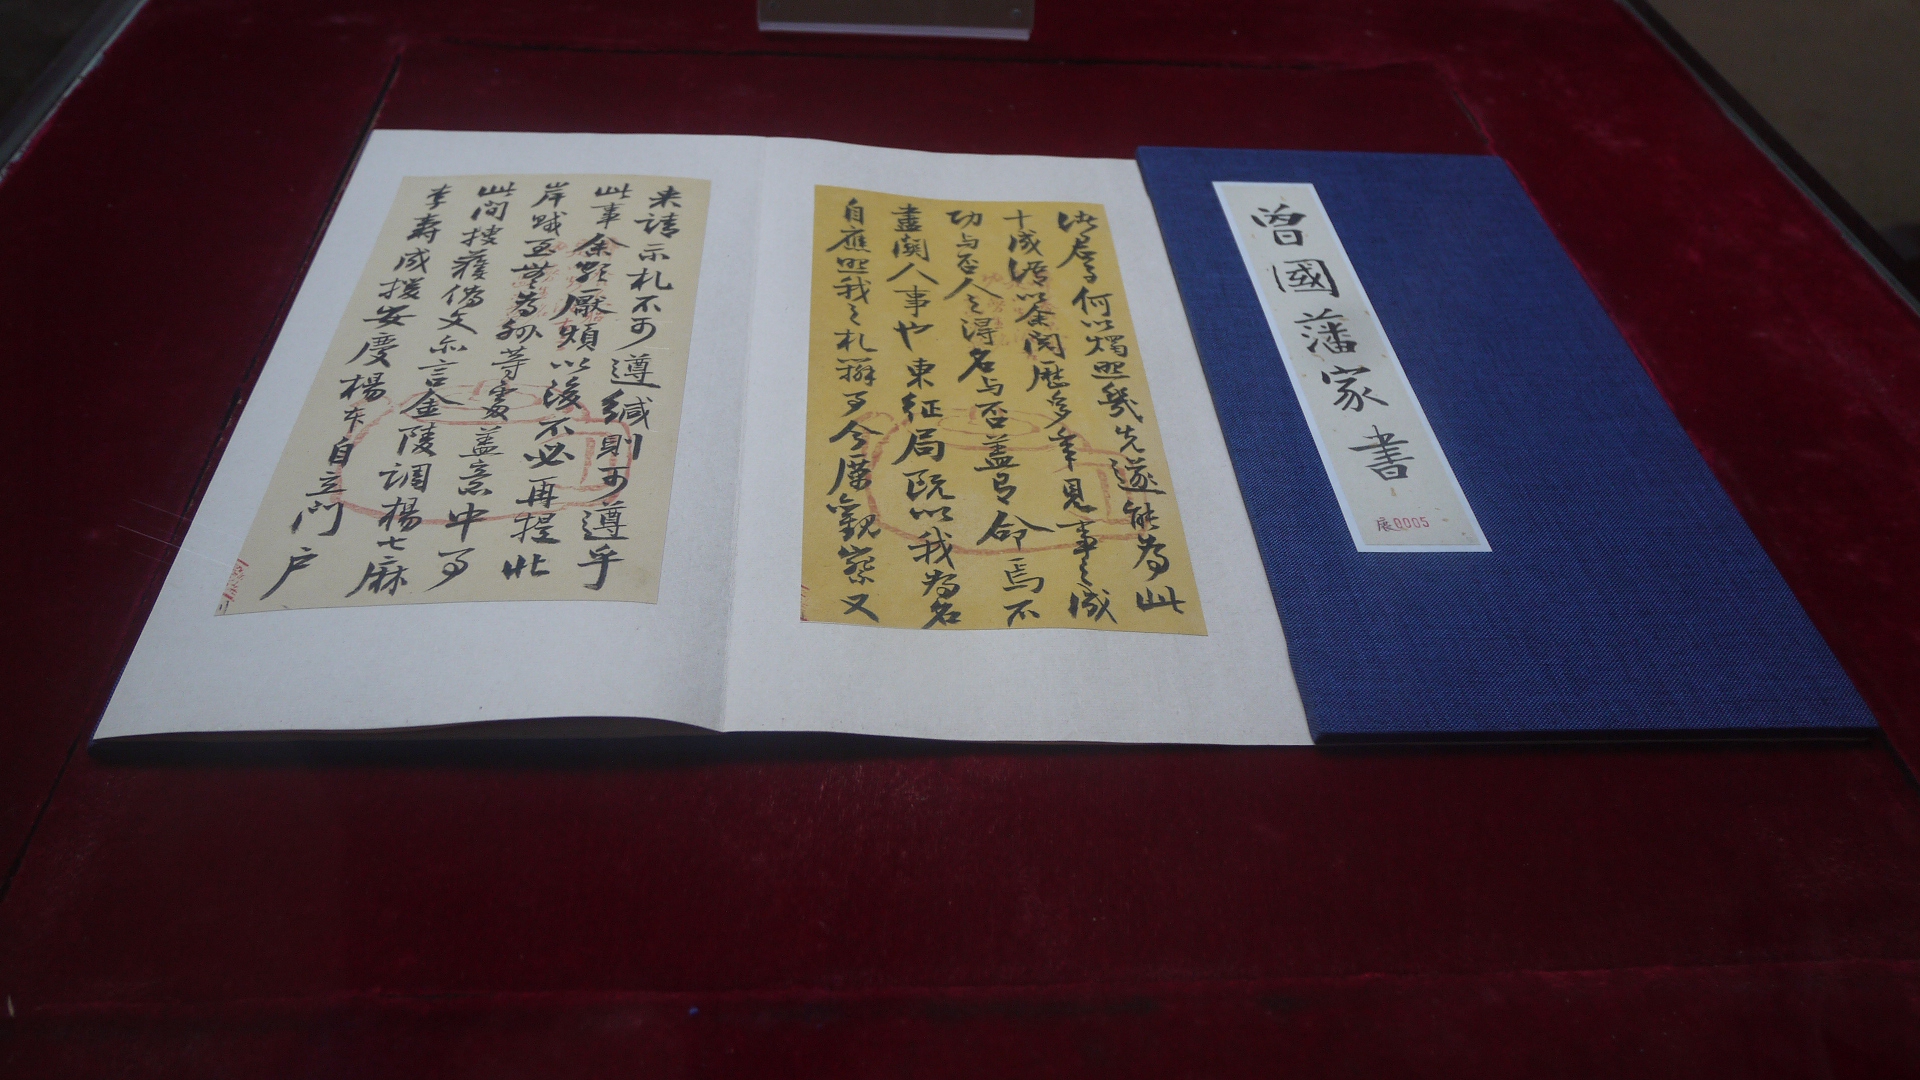 曾國藩家書
展0005
何以燭照幾先遂能為此
十成語以余閱歷多年見事之成
功与否人之得名与否盖有命焉不
盡關人事也東征局既以我為名
自應照我之札辦事今觀察又
来請示札不可遵緘則可遵乎
此事余頗厭煩以後不必再提北
岸賊至無為州等處盖意中事
此間搜獲偽文亦言金陵調楊七麻
李壽成援安慶楊本自立門户